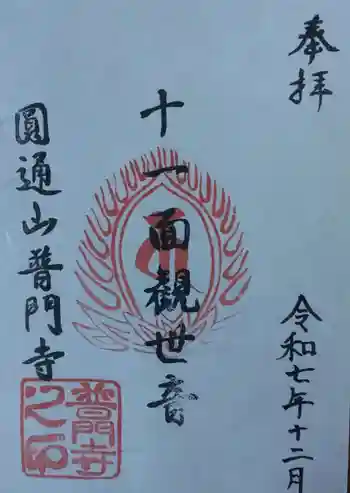 奉拝
令和七年十二月
十一面観世音
圓通山普門寺
普門寺之印